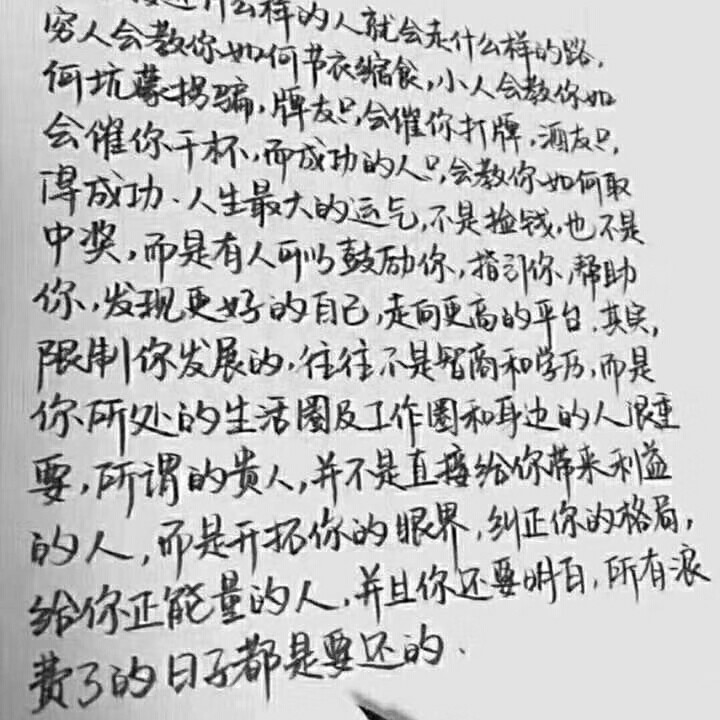 什么样的人就会走什么样的路,
穷人会教你如何节衣缩食,小人会教你如
何坑蒙拐骗,牌友只会催你打牌,酒友只
会催你干杯,而成功的人只会教你如何取
得成功.人生最大的运气,不是捡钱,也不是
中奖,而是有人可以鼓励你,指引你,帮助
你,发现更好的自己,走向更高的平台.其实,
限制你发展的,往往不是智商和学历,而是
你所处的生活圈及工作圈和身边的人很重
要,所谓的贵人,并不是直接给你带来利益
的人,而是开拓你的眼界,纠正你的格局,
给你正能量的人,并且你还要明白,所有浪
费了的日子都是要还的.